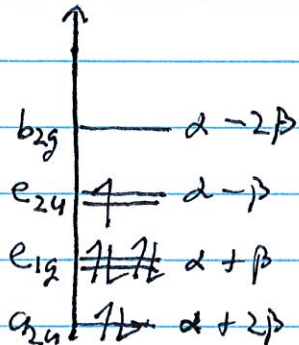 b2g α - 2β
e2u α - β
e1g α + β
a2u α + 2β